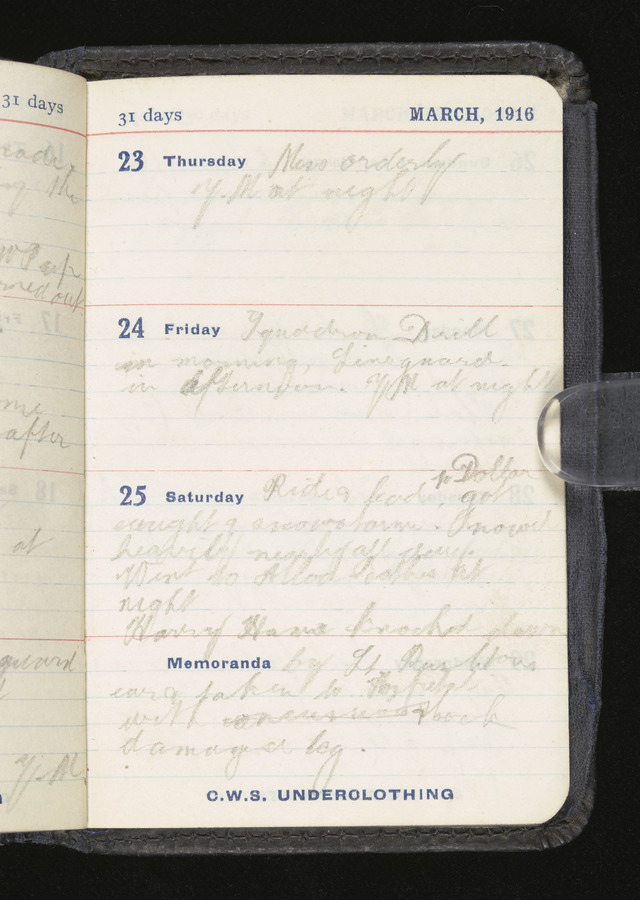 31 days
31 days MARCH, 1916
23 Thursday Mess orderly
Y.M at night
24 Friday Squadron Drill
in morning, Lineguard
in afternoon. YM at night
to Dollar
25 Saturday Ride & lead, got
caught g snowstorm. Snowed
heavily nearly all day.
Went to Alloa Baths at
night
Harry Hame knocked down
Memoranda by Lt
car & taken to Hospital
with shock
damaged leg.
C.W.S. UNDERCLOTHING
the
17
me
after
18
at
guard
Y.M.